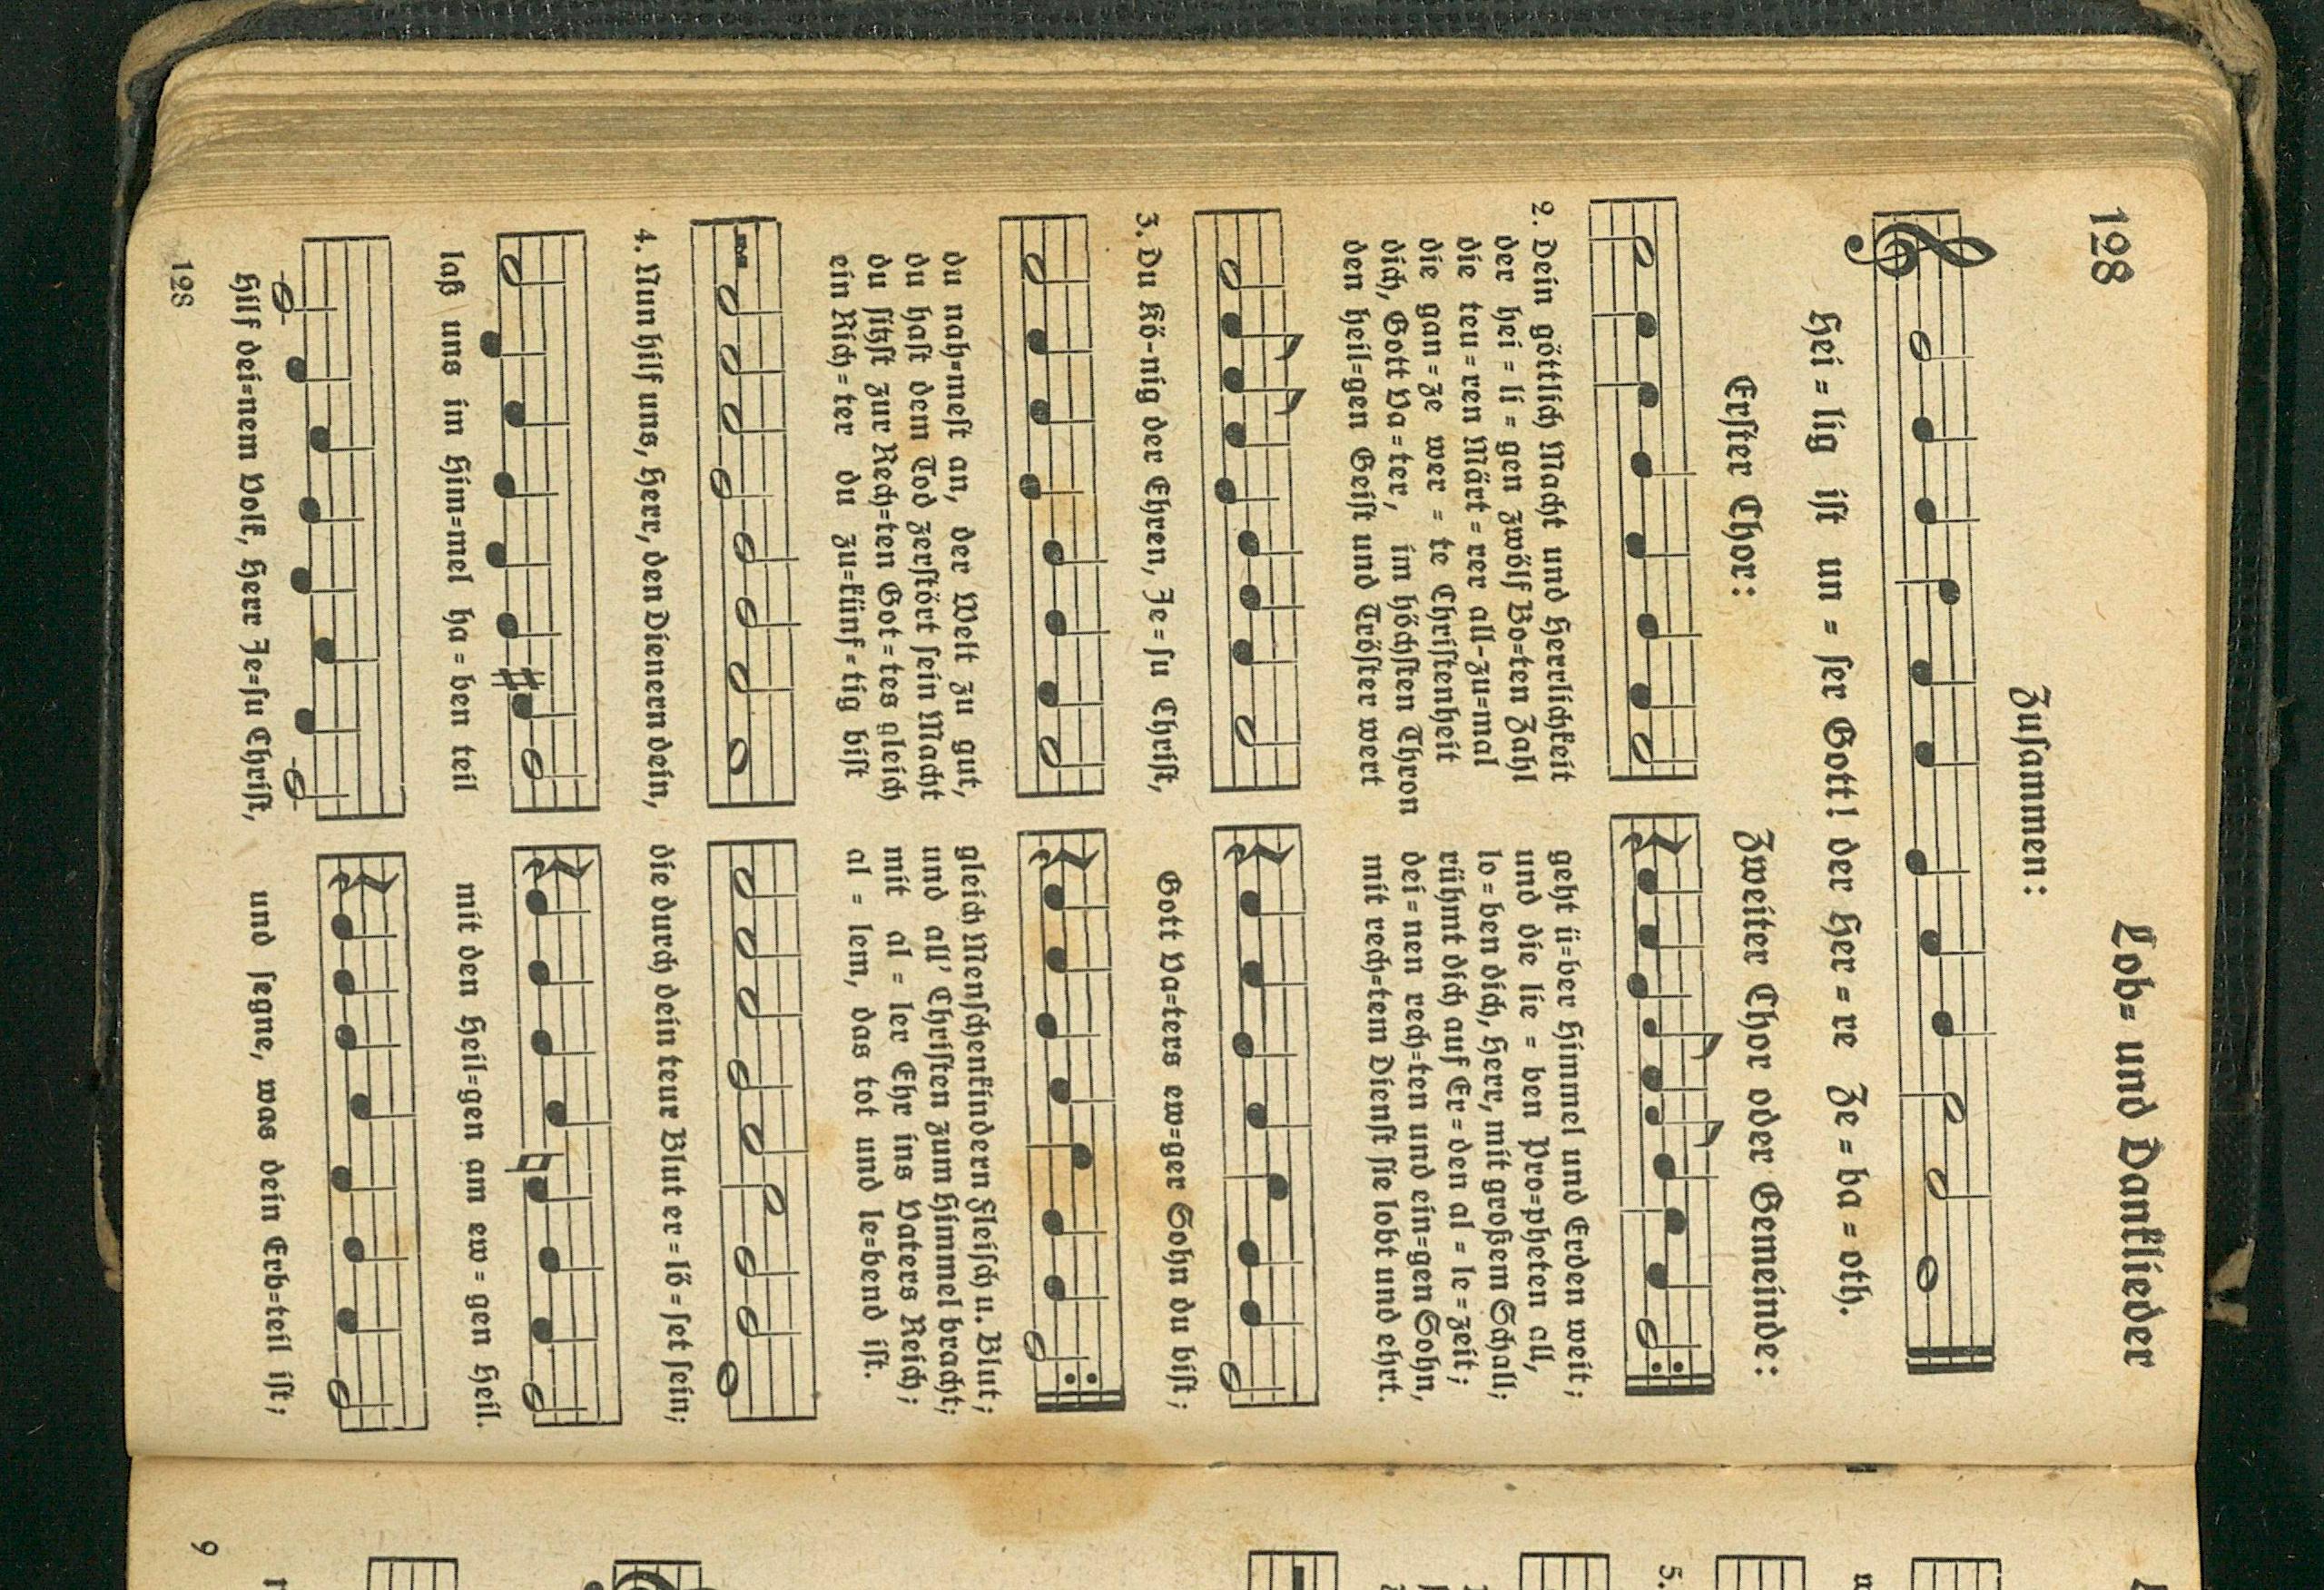 128
Lob= und Danklieder
Zusammen:
Hei = lig ist un = ser Gott! der Her = re Ze = ba = oth.
Erster Chor:
Zweiter Chor oder Gemeinde:
2. Dein göttlich Macht und Herrlichkeit
der hei = li = gen zwölf Bo=ten Zahl
die teu = ren Märt = rer all-zu=mal
die gan = ze wer = te Christenheit
dich, Gott Va = ter, im höchsten Thron
den heil=gen Geist und Tröster wert
geht ü=ber Himmel und Erden weit;
und die lie = ben Pro=pheten all,
lo = ben dich, Herr, mit großem Schall;
rühmt dich auf Er = den al = le = zeit;
dei = nen rech=ten und ein=gen Sohn,
mit rech=tem Dienst sie lobt und ehrt.
3. Du Kö-nig der Ehren, Je = su Christ,
Gott Va=ters ew=ger Sohn du bist;
du nah=mest an, der Welt zu gut,
du hast dem Tod zerstört sein Macht
du sitzst zur Rech=ten Got = tes gleich
ein Rich = ter du zu=künf = tig bist
gleich Menschenkindern Fleisch u. Blut;
und all' Christen zum Himmel bracht;
mit al = ler Ehr ins Vaters Reich;
al = lem, das tot und le=bend ist.
4. Nun hilf uns, Herr, den Dienern dein,
die durch dein teur Blut er = lö = set sein;
laß uns im Him=mel ha = ben teil
mit den Heil=gen am ew = gen Heil.
Hilf dei=nem Volk, Herr Je=su Christ,
und segne, was dein Erb=teil ist;
128
5.
9